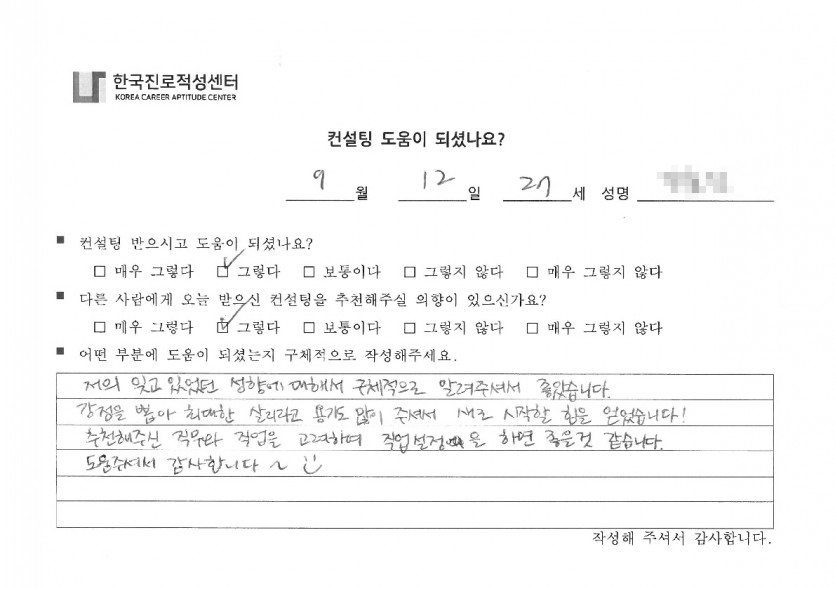 한국진로적성센터
KOREA CAREER APTITUDE CENTER
컨설팅 도움이 되셨나요?
9 월 12 일 27 세 성명
■ 컨설팅 받으시고 도움이 되셨나요?
□ 매우 그렇다 ☑ 그렇다 □ 보통이다 □ 그렇지 않다 □ 매우 그렇지 않다
■ 다른 사람에게 오늘 받으신 컨설팅을 추천해주실 의향이 있으신가요?
□ 매우 그렇다 ☑ 그렇다 □ 보통이다 □ 그렇지 않다 □ 매우 그렇지 않다
■ 어떤 부분에 도움이 되셨는지 구체적으로 작성해주세요.
저의 잊고 있었던 성향에 대해서 구체적으로 알려주셔서 좋았습니다.
강점을 뽑아 최대한 살리라고 용기도 많이 주셔서 새로 시작할 힘을 얻었습니다!
추천해주신 직무와 직업을 고려하며 직업설정을 하면 좋을것 같습니다.
도움주셔서 감사합니다 ~ :)
작성해 주셔서 감사합니다.